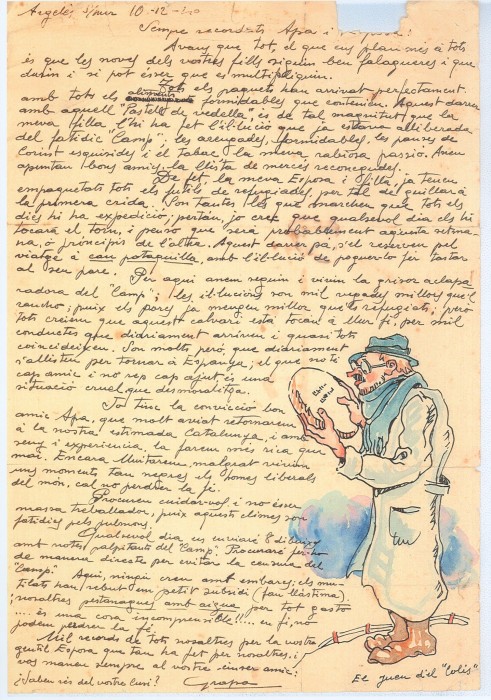 Argelés s/mer 10-12-40
Sempre recordats Apa i
Avans que tot, el que ens plau més á tots
és que les noves dels vostres fills siguin ben falagueres i que
durin i si pot ésser que es multipliquin.
Tots els paquets han arrivat perfectament.
amb tots els aliments formidables que contenien. Aquest darrer
amb aquell "Pastell de vedella", és de tal magnitut, que la
meva filla s'hi ha fet l'il·lució que ja estava alliberada
del fatidic "Camp"; les arengades, formidables, les panses de
Corint esquisides i el tabac la meva rabiosa passió. Aneu
apuntan! bons amics la llista de mercès reconegudes.
De fet, la meva Esposa i filla, ja tenen
empaquetats tots els futils de refugiades, per tal de guillar á
la primera crida. Son tantes les que marchen que tots els
dies hi ha expedició; pertan, jo crec que qualsevol dia els hi
tocará el torn, i penso que será probablement aquesta setma-
na, ó principis de l'altra. Aquest darrer pa, s'el reserven pel
viatge á can potaquilla, amb l'il·lució de poguerlo fer tastar
al seu pare.
Per aqui anem seguin i vivim la grisor aclapa-
radora del "Camp"; les il·lucions son mil vegades millors que'l
rancho; puix els porcs ja mengen millor que'ls refugiats; però
tots creiem que aquest calvari está tocan á llur fi, per mil
conductes que diariament arriven i quasi tots
coincideixen. Son molts però que diariament
s'allisten per tornar á Espanya; el que no té
cap amic i no rep cap ajut, és una
situació cruel que desmoralitza.
Jo tinc la convicció bon
amic Apa, que molt aviat retornarem
á la nostra estimada Catalunya, i amb
seny i experiencia, la farem més rica que
mai. Encara lluitarem, malgrat vivim
uns moments tan negres els homes liberals
del món, cal no perdre la fé.
Procureu cuidar-vos i no ésser
massa treballador, puix aquests climes son
fatidics pels pulmons.
Qualsevol dia us enviaré 8 dibuixos
amb notes palpitants del "Camp". Procuraré fer-ho
de manera directe per evitar la censura del
"Camp".
Aqui, ningú creu amb embarcs; els mu-
tilats han rebut un petit subsidi (fan llástima).
i nosaltres pastanagues amb aigua, per tot gasto
.... és una cosa incomprensible!!.... en fi, no
podem perdre la fé.
Mil records de tots nosaltres per la vostra
gentil Esposa que tan ha fet per nosaltres, i
vos maneu sempre al vostre sincer amic:
¿Sabeu rés del vostre lusi? Grapa
El gueu d'el "Colis"